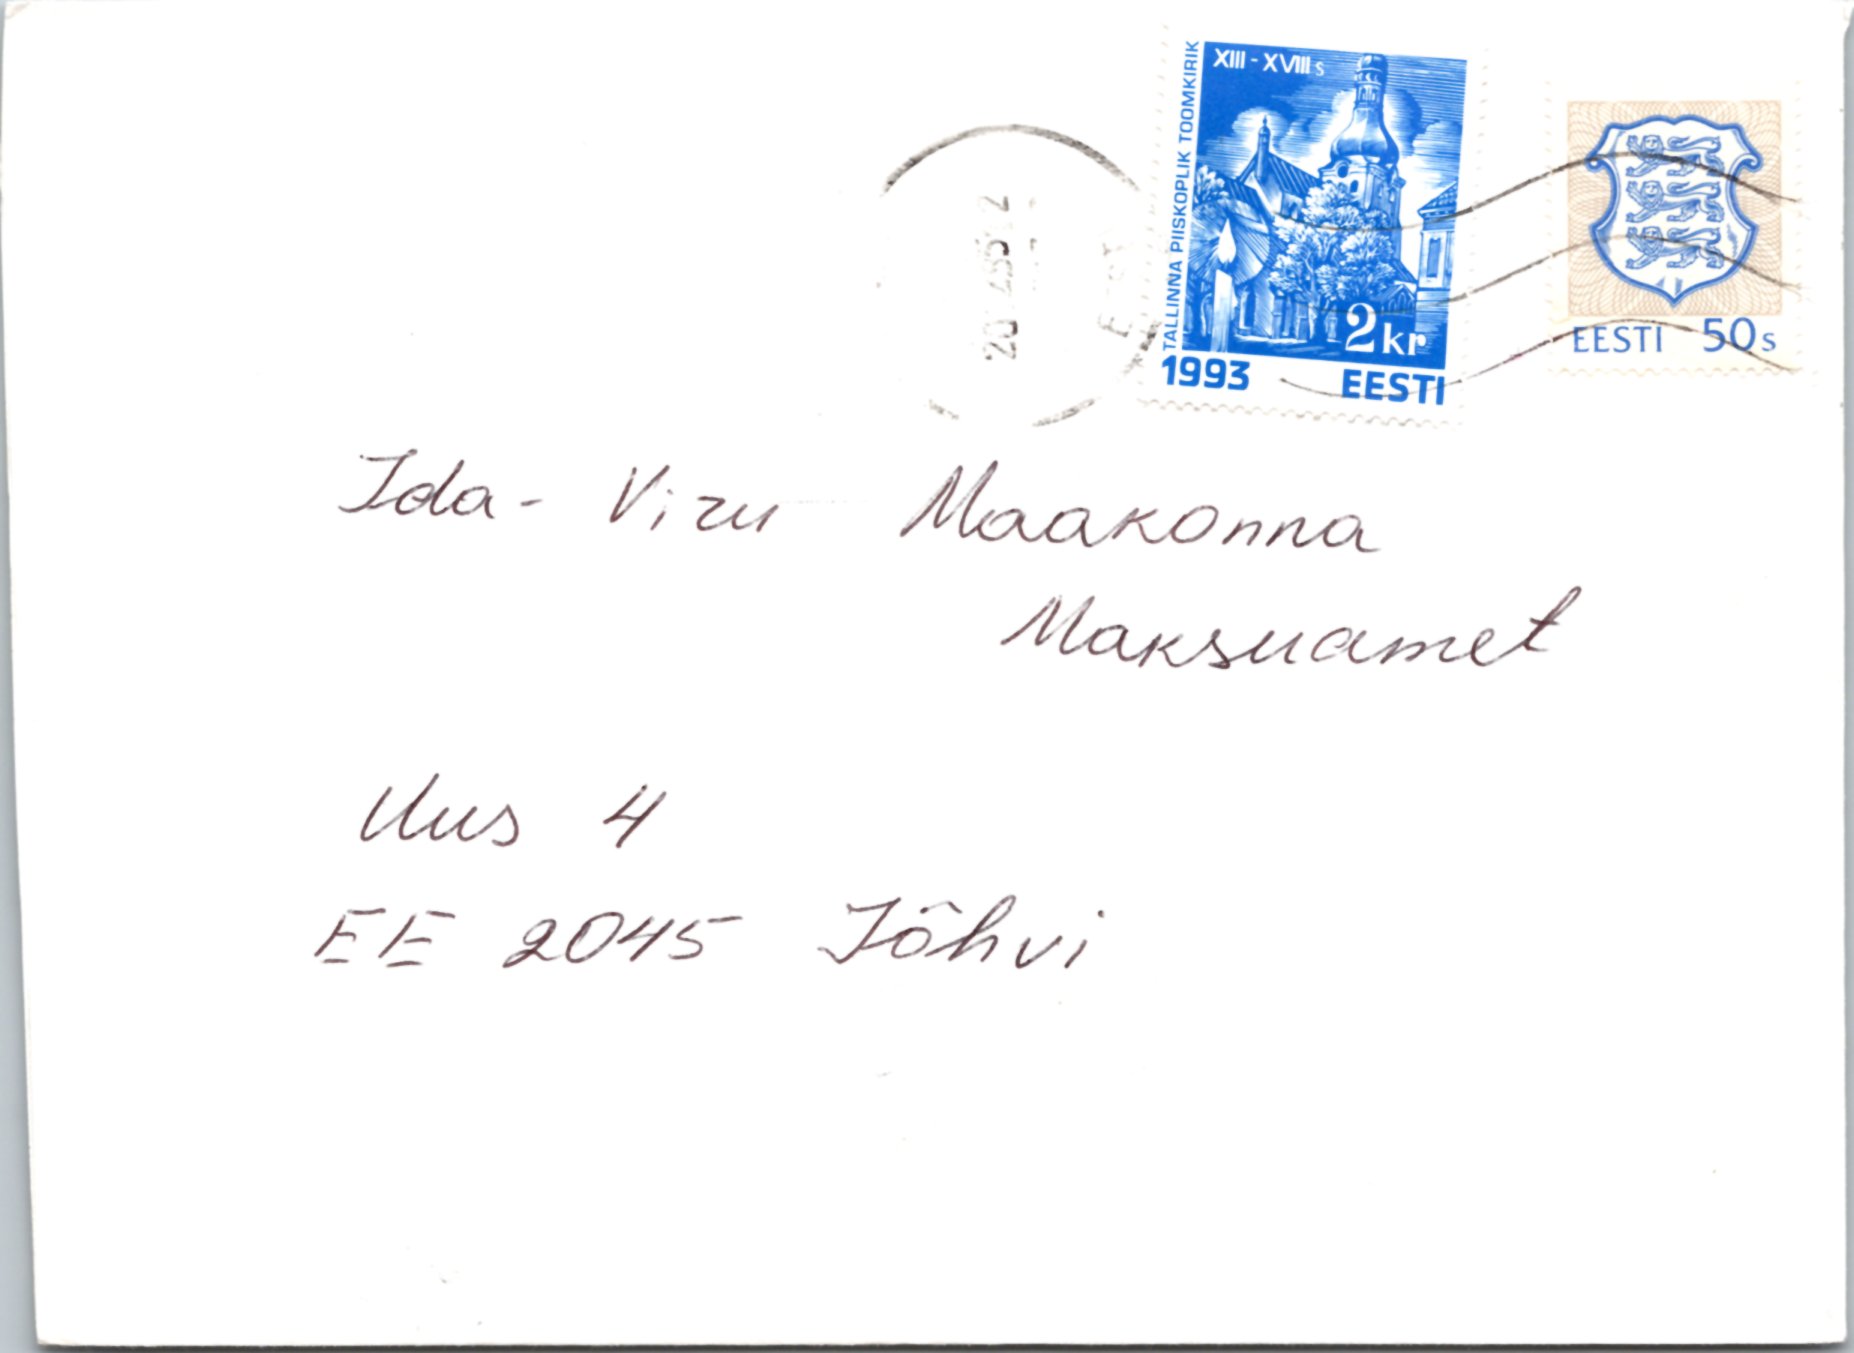 XIII - XVIII s
TALLINNA PIISKOPLIK TOOMKIRIK
2 kr
1993 EESTI
EESTI 50 s
Ida- Viru Maakonna
Maksuamet
Uus 4
EE 2045 Jõhvi